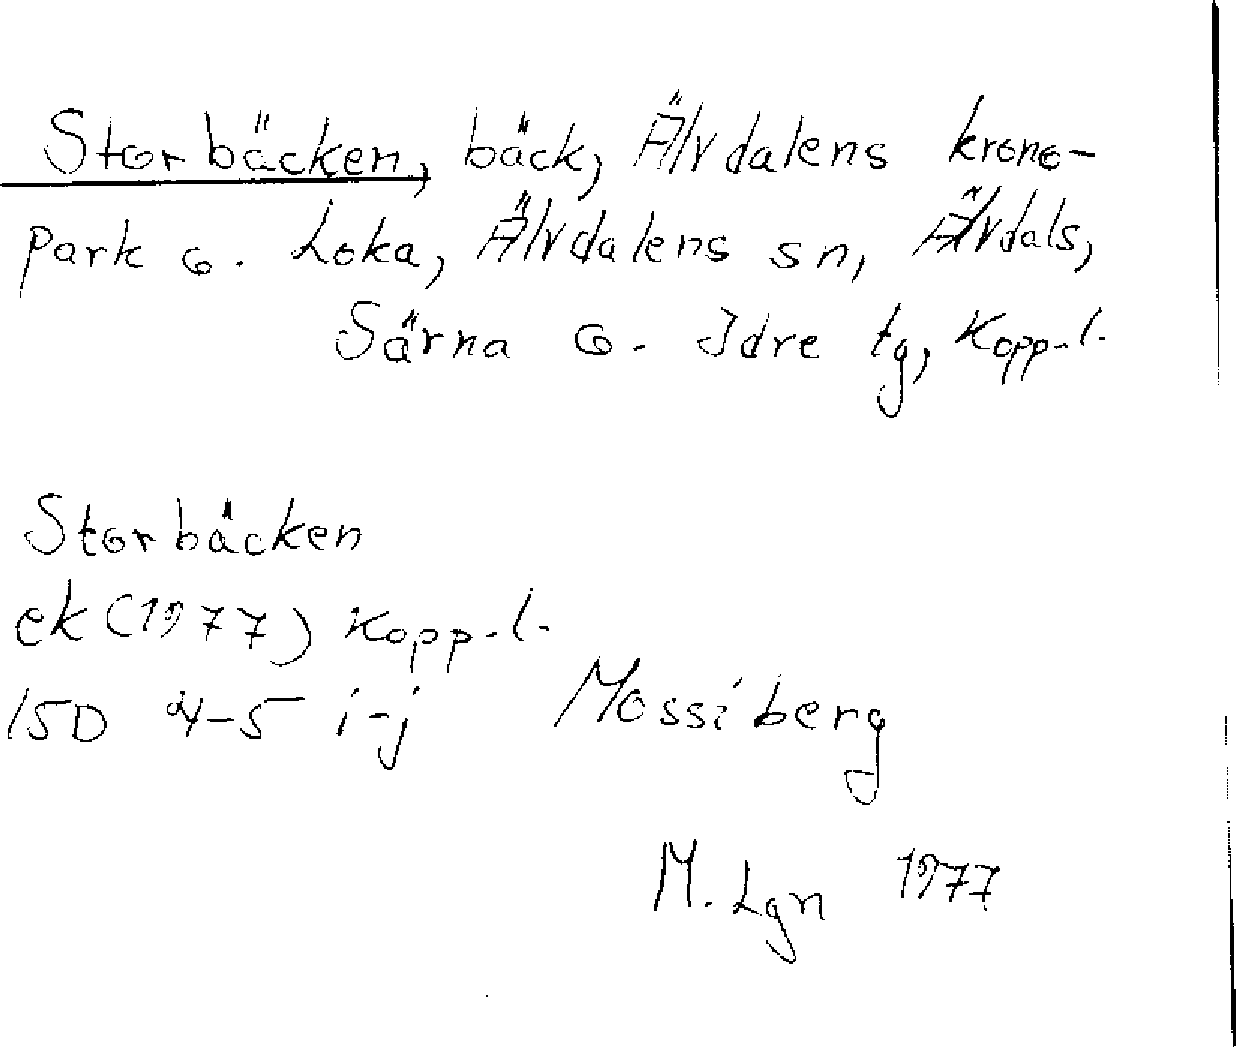 Storbäcken, bäck, Älvdalens krono-
park o. Loka, Älvdalens sn, Älvdals,
Särna o. Idre tg, Kopp. l.
Storbäcken
ek (1977) Kopp. l.
15D 4-5 i-j Mossiberg
M. Lgn 1977